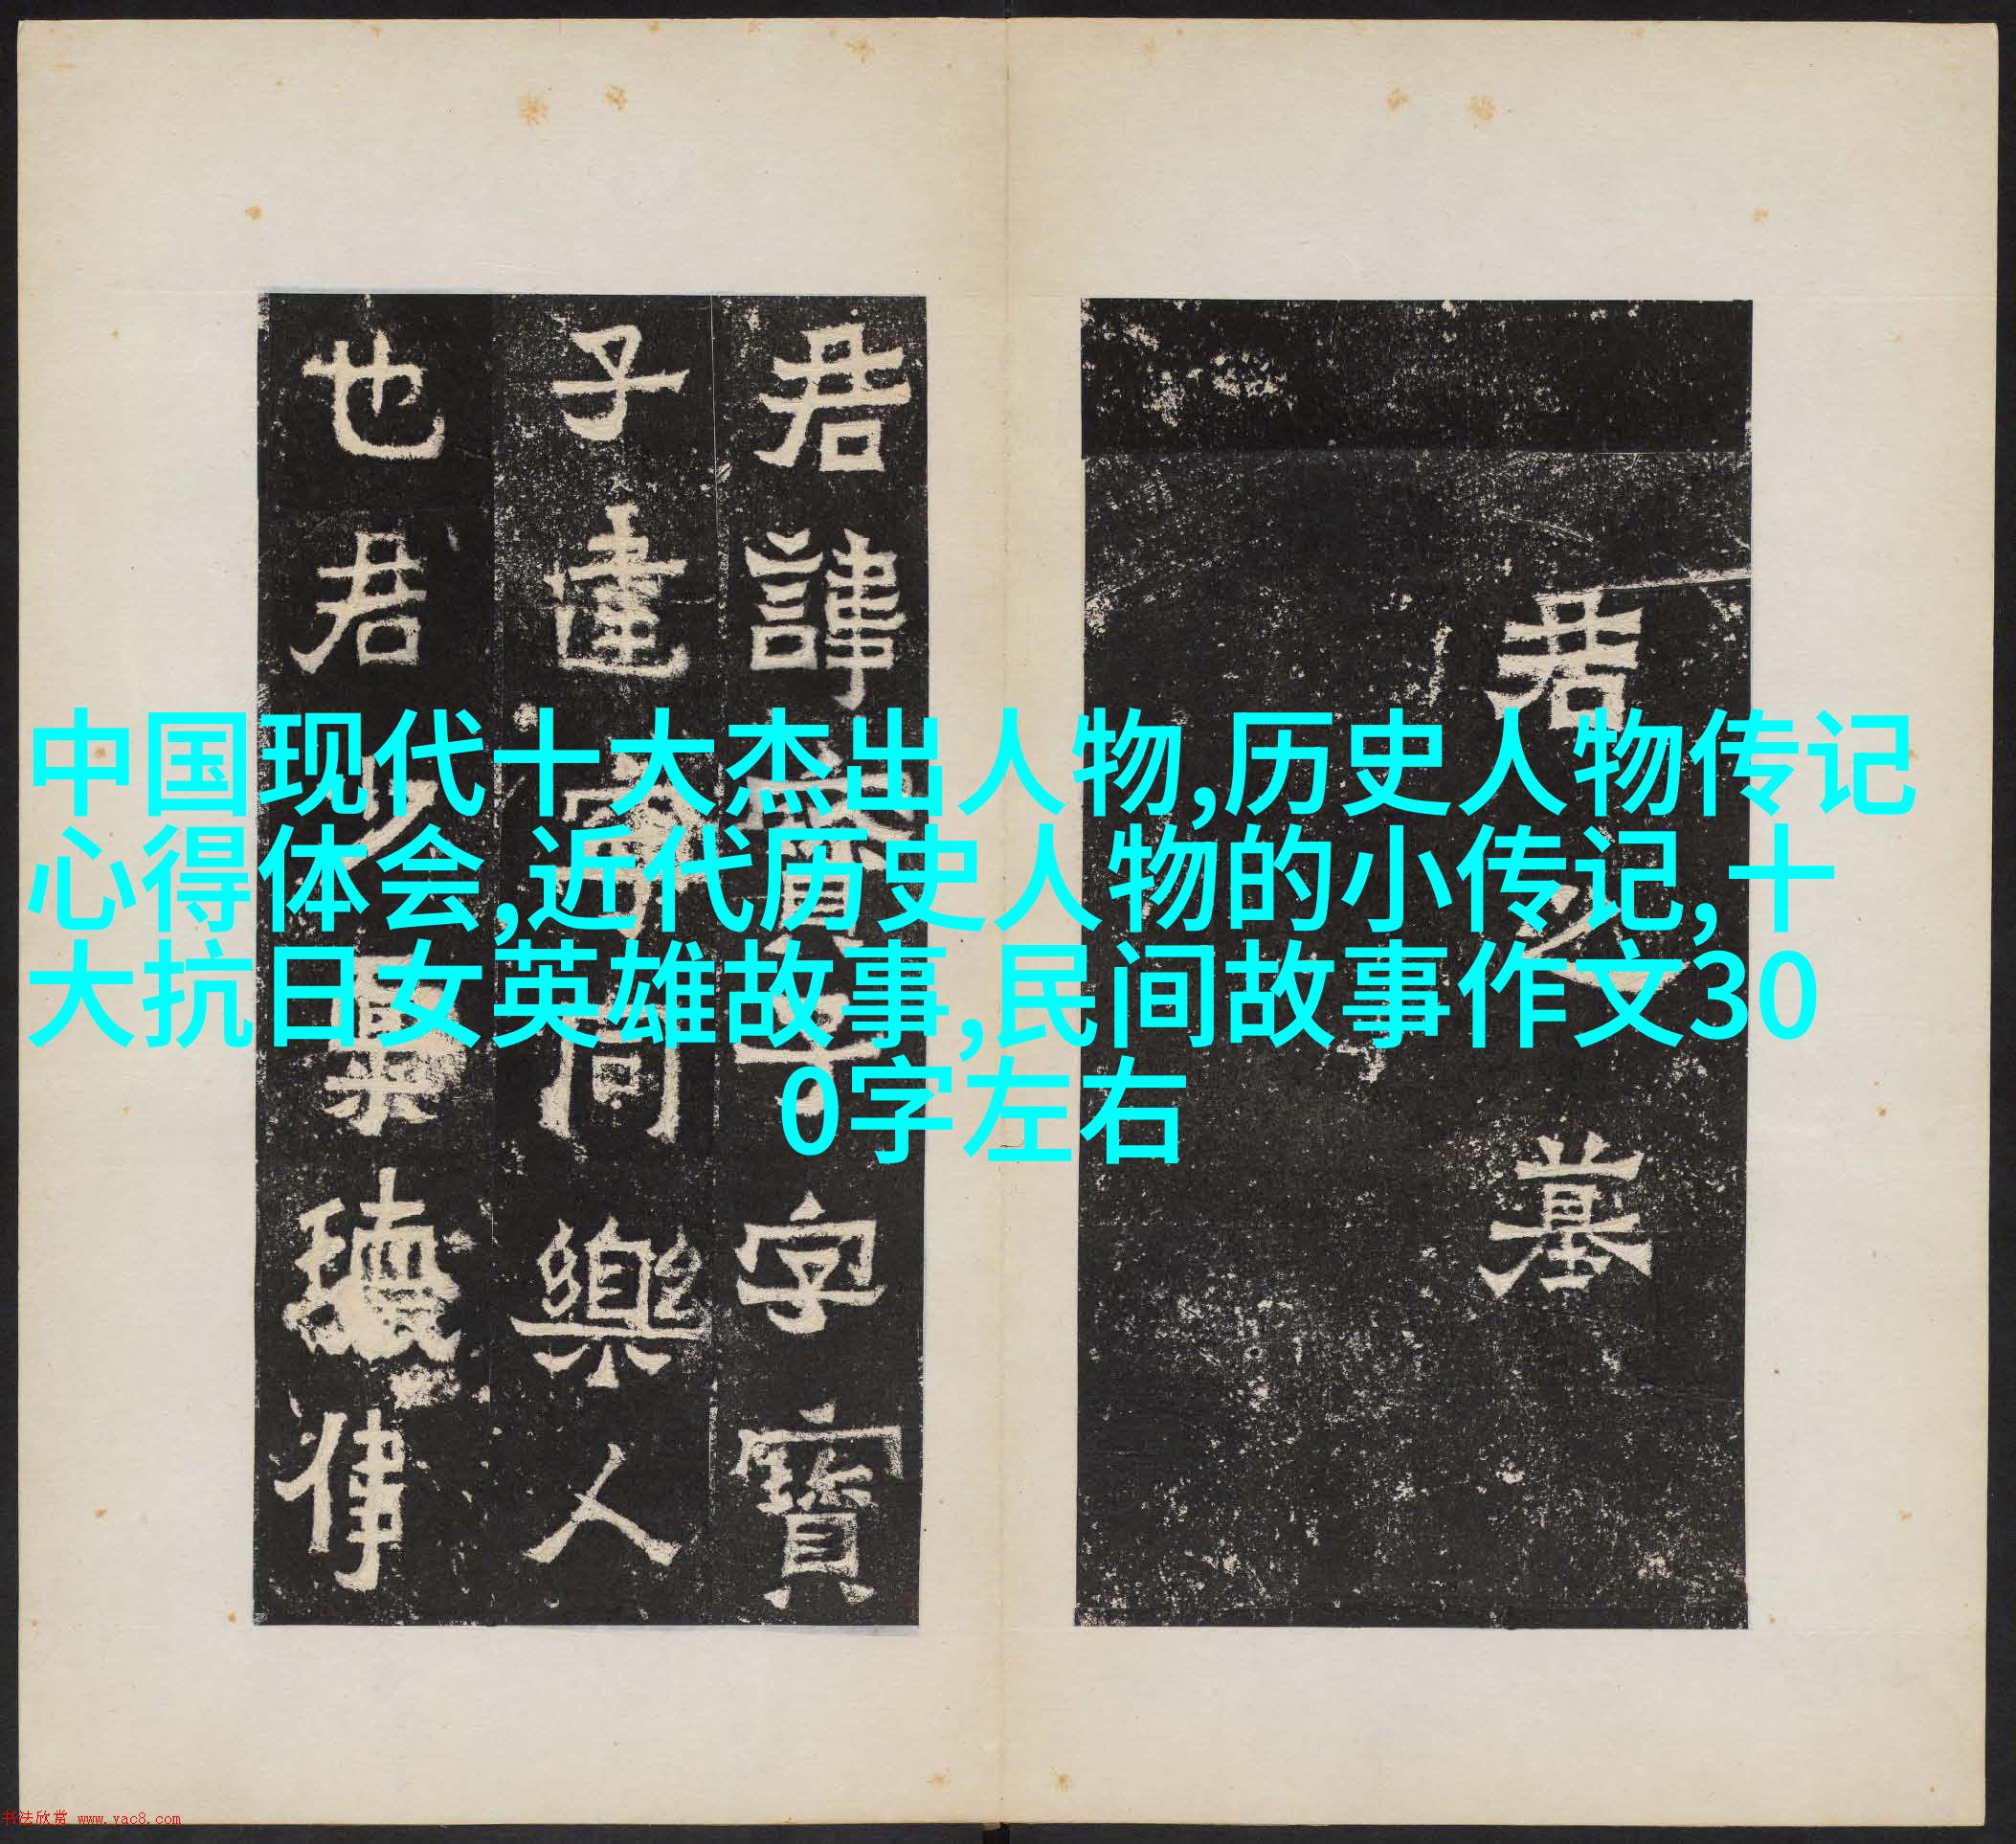 中国现代十大杰出人物,历史人物传记
心得体会,近代历史人物的小传记,十
大抗日女英雄故事,民间故事作文30
0字左右
君之墓
君諱寶子字寶
子達寧同樂人
也君少稟瓌偉
书法欣赏 www.yac8.com